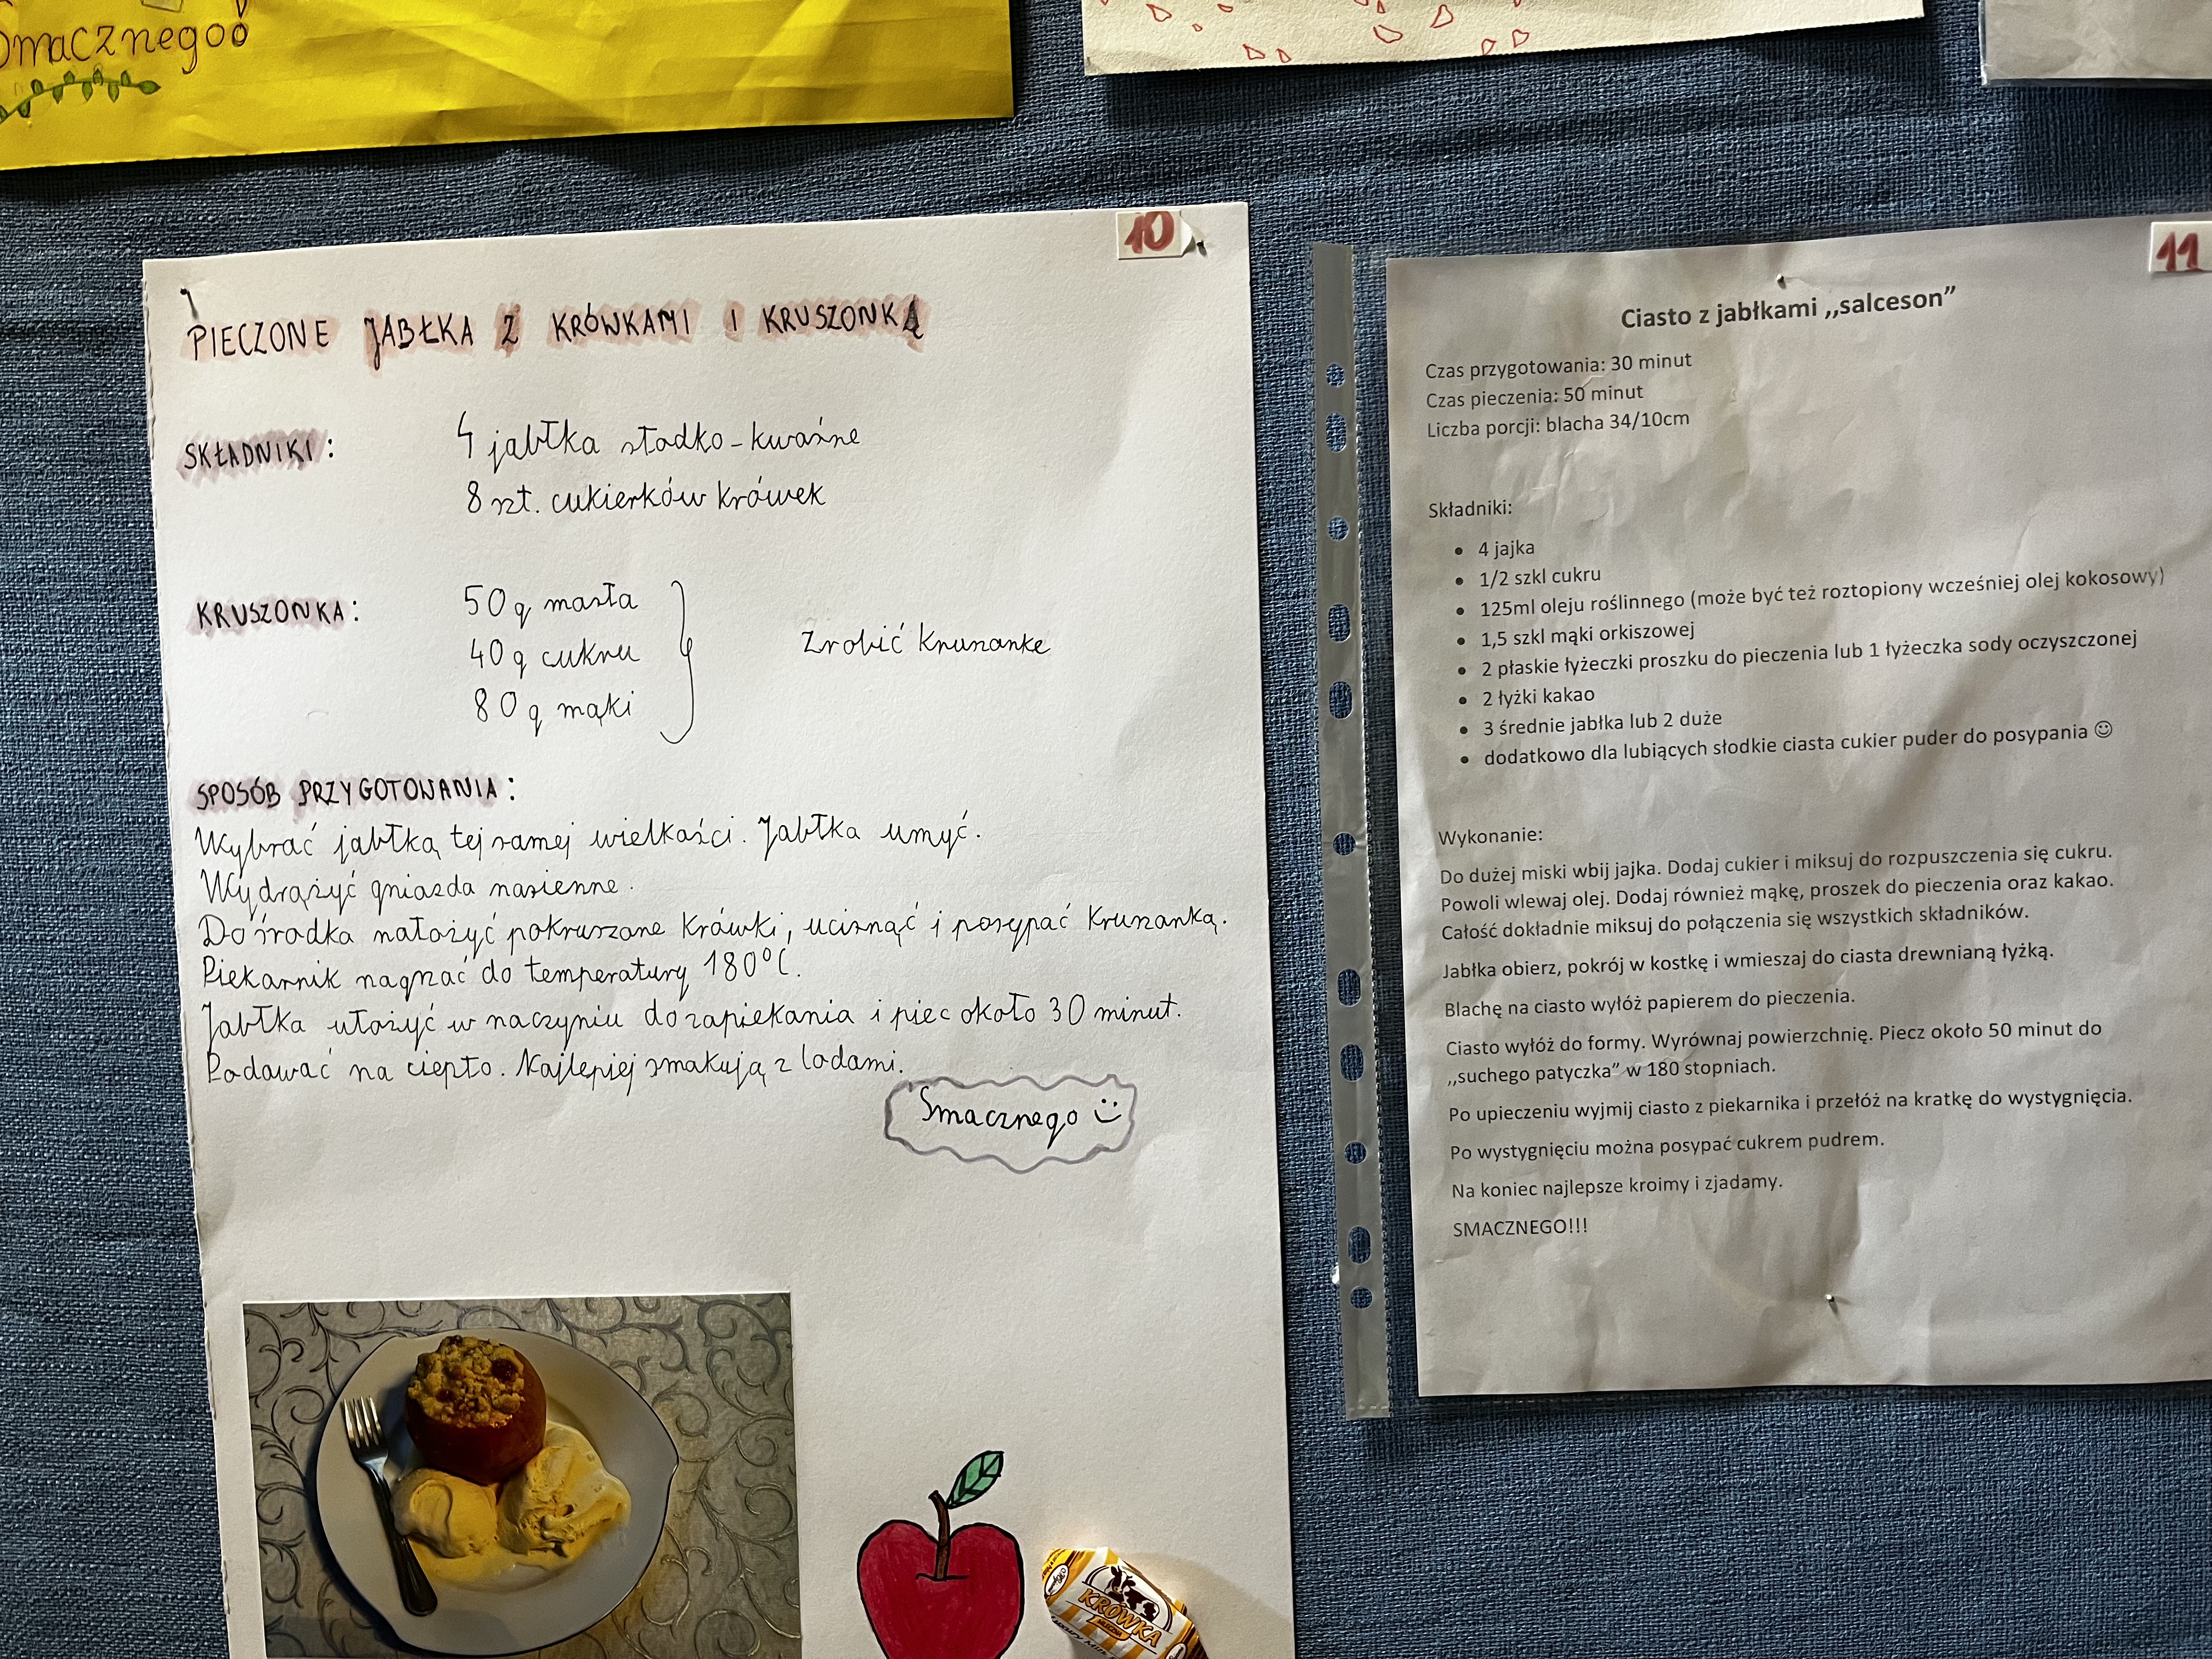 Smacznego!
10
PIECZONE JABŁKA Z KRÓWKAMI I KRUSZONKĄ
SKŁADNIKI:
4 jabłka słodko-kwaśne
8 szt. cukierków krówek
KRUSZONKA:
50g masła
40g cukru
80g mąki
Zrobić kruszonkę
SPOSÓB PRZYGOTOWANIA:
Wybrać jabłka tej samej wielkości. Jabłka umyć.
Wydrążyć gniazda nasienne.
Do środka nałożyć pokruszone krówki, ucisnąć i posypać kruszonką.
Piekarnik nagrzać do temperatury 180°C.
Jabłka ułożyć w naczyniu do zapiekania i piec około 30 minut.
Podawać na ciepło. Najlepiej smakują z lodami.
Smacznego
KRÓWKA
11
Ciasto z jabłkami ,,salceson"
Czas przygotowania: 30 minut
Czas pieczenia: 50 minut
Liczba porcji: blacha 34/10cm
Składniki:
• 4 jajka
• 1/2 szkl cukru
• 125ml oleju roślinnego (może być też roztopiony wcześniej olej kokosowy)
• 1,5 szkl mąki orkiszowej
• 2 płaskie łyżeczki proszku do pieczenia lub 1 łyżeczka sody oczyszczonej
• 2 łyżki kakao
• 3 średnie jabłka lub 2 duże
• dodatkowo dla lubiących słodkie ciasta cukier puder do posypania ☺
Wykonanie:
Do dużej miski wbij jajka. Dodaj cukier i miksuj do rozpuszczenia się cukru.
Powoli wlewaj olej. Dodaj również mąkę, proszek do pieczenia oraz kakao.
Całość dokładnie miksuj do połączenia się wszystkich składników.
Jabłka obierz, pokrój w kostkę i wmieszaj do ciasta drewnianą łyżką.
Blachę na ciasto wyłóż papierem do pieczenia.
Ciasto wyłóż do formy. Wyrównaj powierzchnię. Piecz około 50 minut do
,,suchego patyczka" w 180 stopniach.
Po upieczeniu wyjmij ciasto z piekarnika i przełóż na kratkę do wystygnięcia.
Po wystygnięciu można posypać cukrem pudrem.
Na koniec najlepsze kroimy i zjadamy.
SMACZNEGO!!!